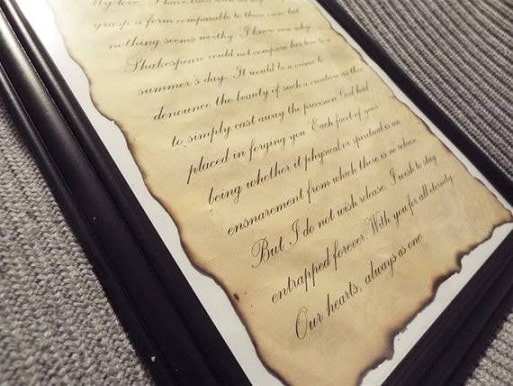 My love, I have
grasp a form comparable to thine own, but
nothing seems worthy. I know now why
Shakespeare could not compare his love to a
summer's day. It would be a crime to
denounce the beauty of such a creature as thee
to simply cast away the precision God had
placed in forging you. Each facet of your
being whether it physical or spiritual is an
ensnarement from which there is no release
But I do not wish release. I wish to stay
entrapped forever. With you for all eternity
Our hearts, always as one.